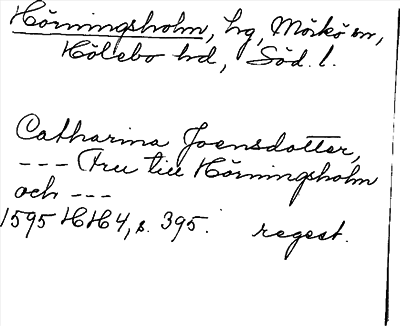 Hörningsholm, hg, Mörkö sn,
Hölebo hd, Söd. l.
Catharina Joensdotter,
--- Fru till Hörningsholm
och ---
1595 HH 4, s. 395. regest.